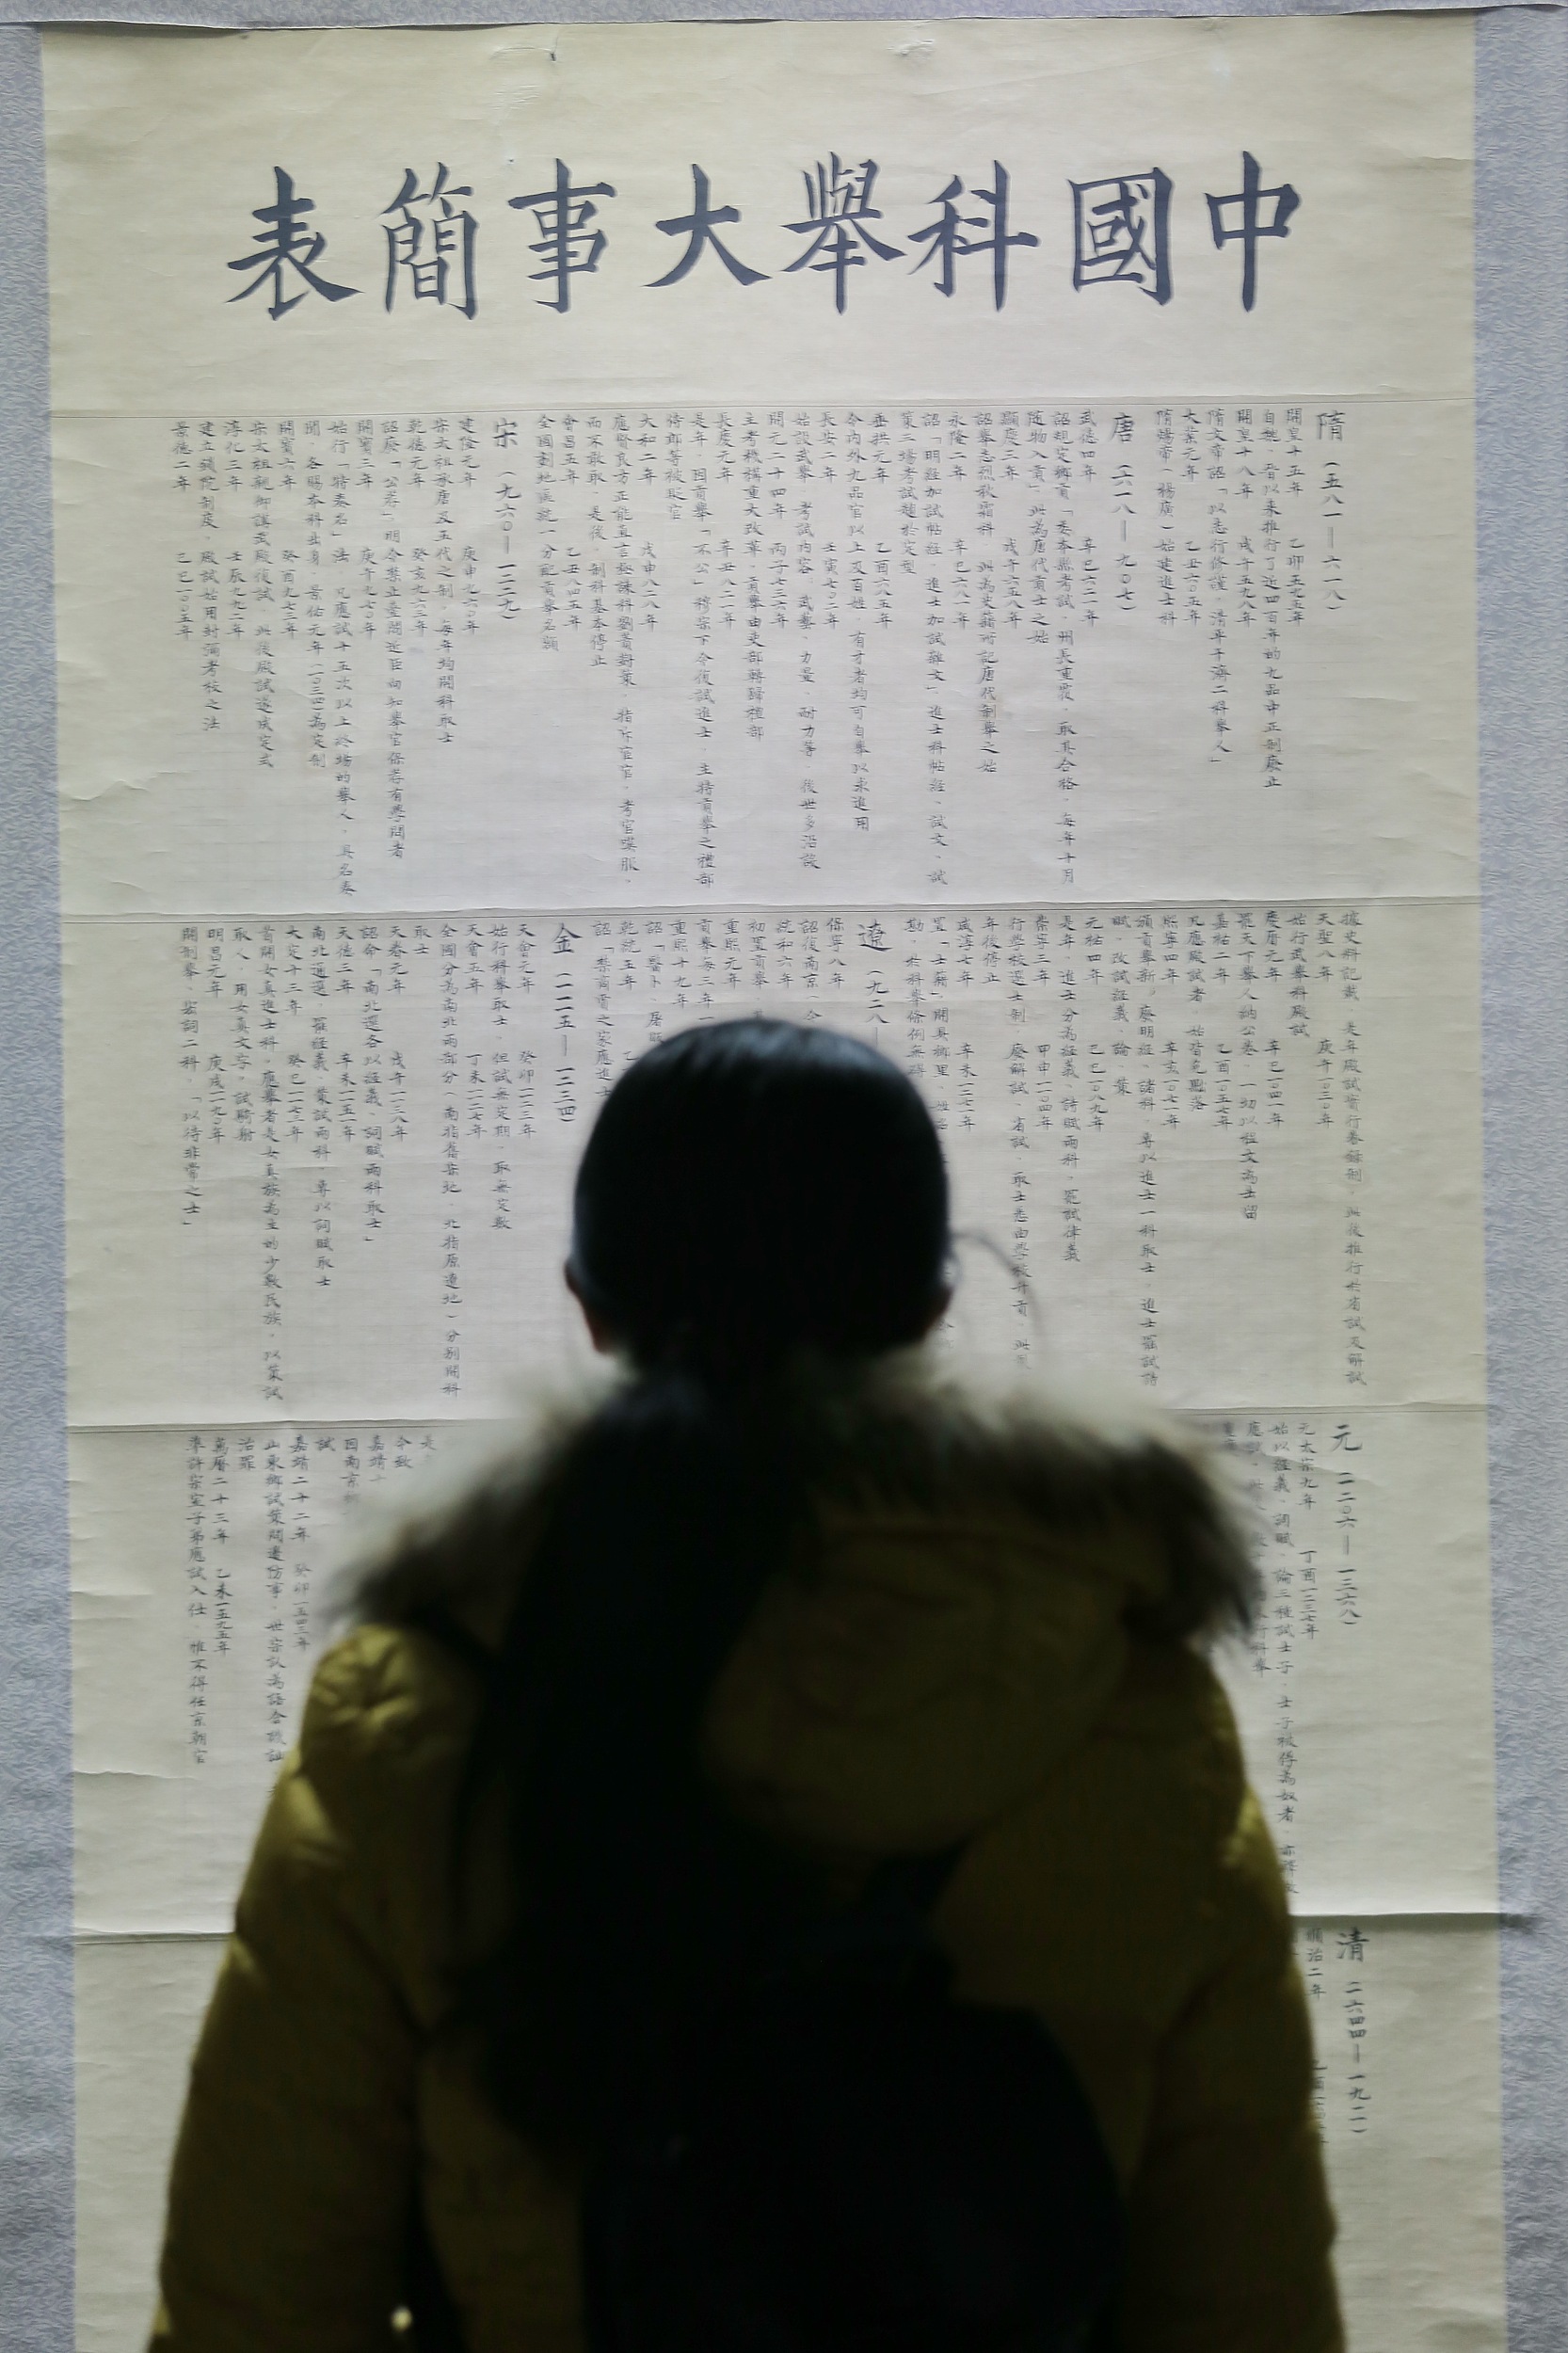 中國科舉大事簡表
隋（五八一—六一八）
開皇十五年 乙卯五九五年
自魏、晉以來推行了近四百年的九品中正制廢止
開皇十八年 戊午五九八年
隋文帝詔「以志行修謹、清平干濟二科舉人」
大業元年 乙丑六〇五年
隋煬帝（楊廣）始建進士科
唐（六一八—九〇七）
武德四年 辛巳六二一年
詔規定鄉貢「委本縣考試，州長重覆，取其合格，每年十月
隨物入貢」此為唐代貢士之始
顯慶三年 戊午六五八年
詔舉志烈秋霜科，此為史籍所記唐代制舉之始
永隆二年 辛巳六八一年
詔「明經加試帖經，進士加試雜文」進士科帖經、試文、試
策三場考試趨於定型
垂拱元年 乙酉六八五年
令內外九品官以上及百姓，有才者均可自舉以求進用
長安二年 壬寅七〇二年
始設武舉，考試內容：武藝、力量、耐力等，後世多沿設
開元二十四年 丙子七三六年
主考機構重大改革，貢舉由吏部轉歸禮部
長慶元年 辛丑八二一年
是年，因貢舉「不公」穆宗下令復試進士，主持貢舉之禮部
侍郎等被貶官
大和二年 戊申八二八年
應賢良方正能直言極諫科劉蕡對策，指斥宦官，考官嘆服，
而不敢取，是後，制科基本停止
會昌五年 乙丑八四五年
全國劃地區統一分配貢舉名額
宋（九六〇—一二七九）
建隆元年 庚申九六〇年
宋太祖承唐及五代之制，每年均開科取士
乾德元年 癸亥九六三年
詔廢「公薦」，明令禁止臺閣近臣向知舉官保薦有學問者
開寶三年 庚午九七〇年
始行「特奏名」法，凡應試十五次以上終場的舉人，具名奏
聞，各賜本科出身，景祐元年（一〇三四）為定制
開寶六年 癸酉九七三年
宋太祖親御講武殿復試，此後殿試遂成定式
淳化三年 壬辰九九二年
建立鎖院制度，殿試始用封彌考校之法
景德二年 乙巳一〇〇五年
據史料記載，是年殿試實行謄錄制，此後推行於省試及解試
天聖八年 庚午一〇三〇年
始行武舉科殿試
慶曆元年 辛巳一〇四一年
罷天下舉人納公卷，一切以程文為去留
嘉祐二年 乙酉一〇五七年
凡應殿試者，始皆免黜落
熙寧四年 辛亥一〇七一年
頒貢舉新制，廢明經、諸科，專以進士一科取士，進士罷試詩
賦，改試經義、論、策
元祐四年 己巳一〇八九年
是年，進士分為經義、詩賦兩科，罷試律義
崇寧三年 甲申一一〇四年
行學校選士制，廢解試、省試，取士悉由學校升貢，此
年後停止
咸淳七年 辛未一二七一年
置「士籍」，開具鄉里、姓
勘，於科舉條例無礙
遼（九二八—
保寧八年
詔復南京（今
統和六年
初置貢舉
重熙元年
貢舉每三年一
重熙十九年
詔「醫卜、屠販
乾統五年 乙
詔「禁商賈之家應進士
金（一一一五—一二三四）
天會元年 癸卯一一二三年
始行科舉取士，但試無定期，取無定數
天會五年 丁未一一二七年
全國分為南北兩部分（南指舊宋北，北指原遼地）分別開科
取士
天眷元年 戊午一一三八年
詔命「南北選各以經義、詞賦兩科取士」
天德三年 辛未一一五一年
南北通選，罷經義、策試兩科，專以詞賦取士
大定十三年 癸巳一一七三年
首開女真進士科，應舉者是女真族為主的少數民族，以策試
取人，用女真文字，試騎射
明昌元年 庚戌一一九〇年
開制舉、宏詞二科，「以待非常之士」
元 一二〇六—一三六八）
元太宗九年 丁酉一二三七年
始以經義、詞賦、論三種試士子，士子被俘為奴者，亦
是
令致
嘉靖十
因南京鄉
試
嘉靖二十二年 癸卯一五四三年
山東鄉試策問邊防事，世宗以為語含譏訕
治罪
萬曆二十三年 乙未一五九五年
準許宗室子弟應試入仕，惟不得任京朝官
清 一六四四—一九一一）
順治二年